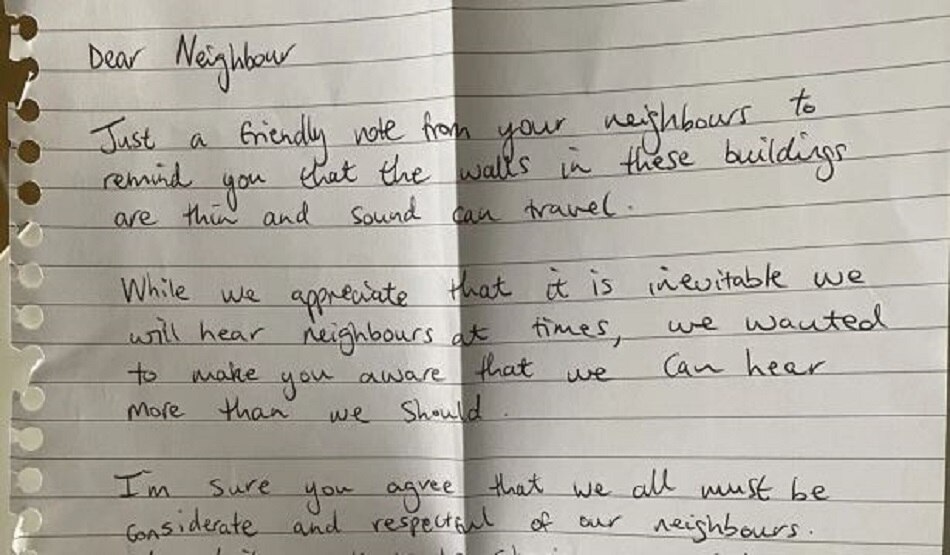 Dear Neighbour
Just a friendly note from your neighbours to
remind you that the walls in these buildings
are thin and sound can travel.
While we appreciate that it is inevitable we
will hear neighbours at times, we wanted
to make you aware that we can hear
more than we should.
I'm sure you agree that we all must be
considerate and respectful of our neighbours.